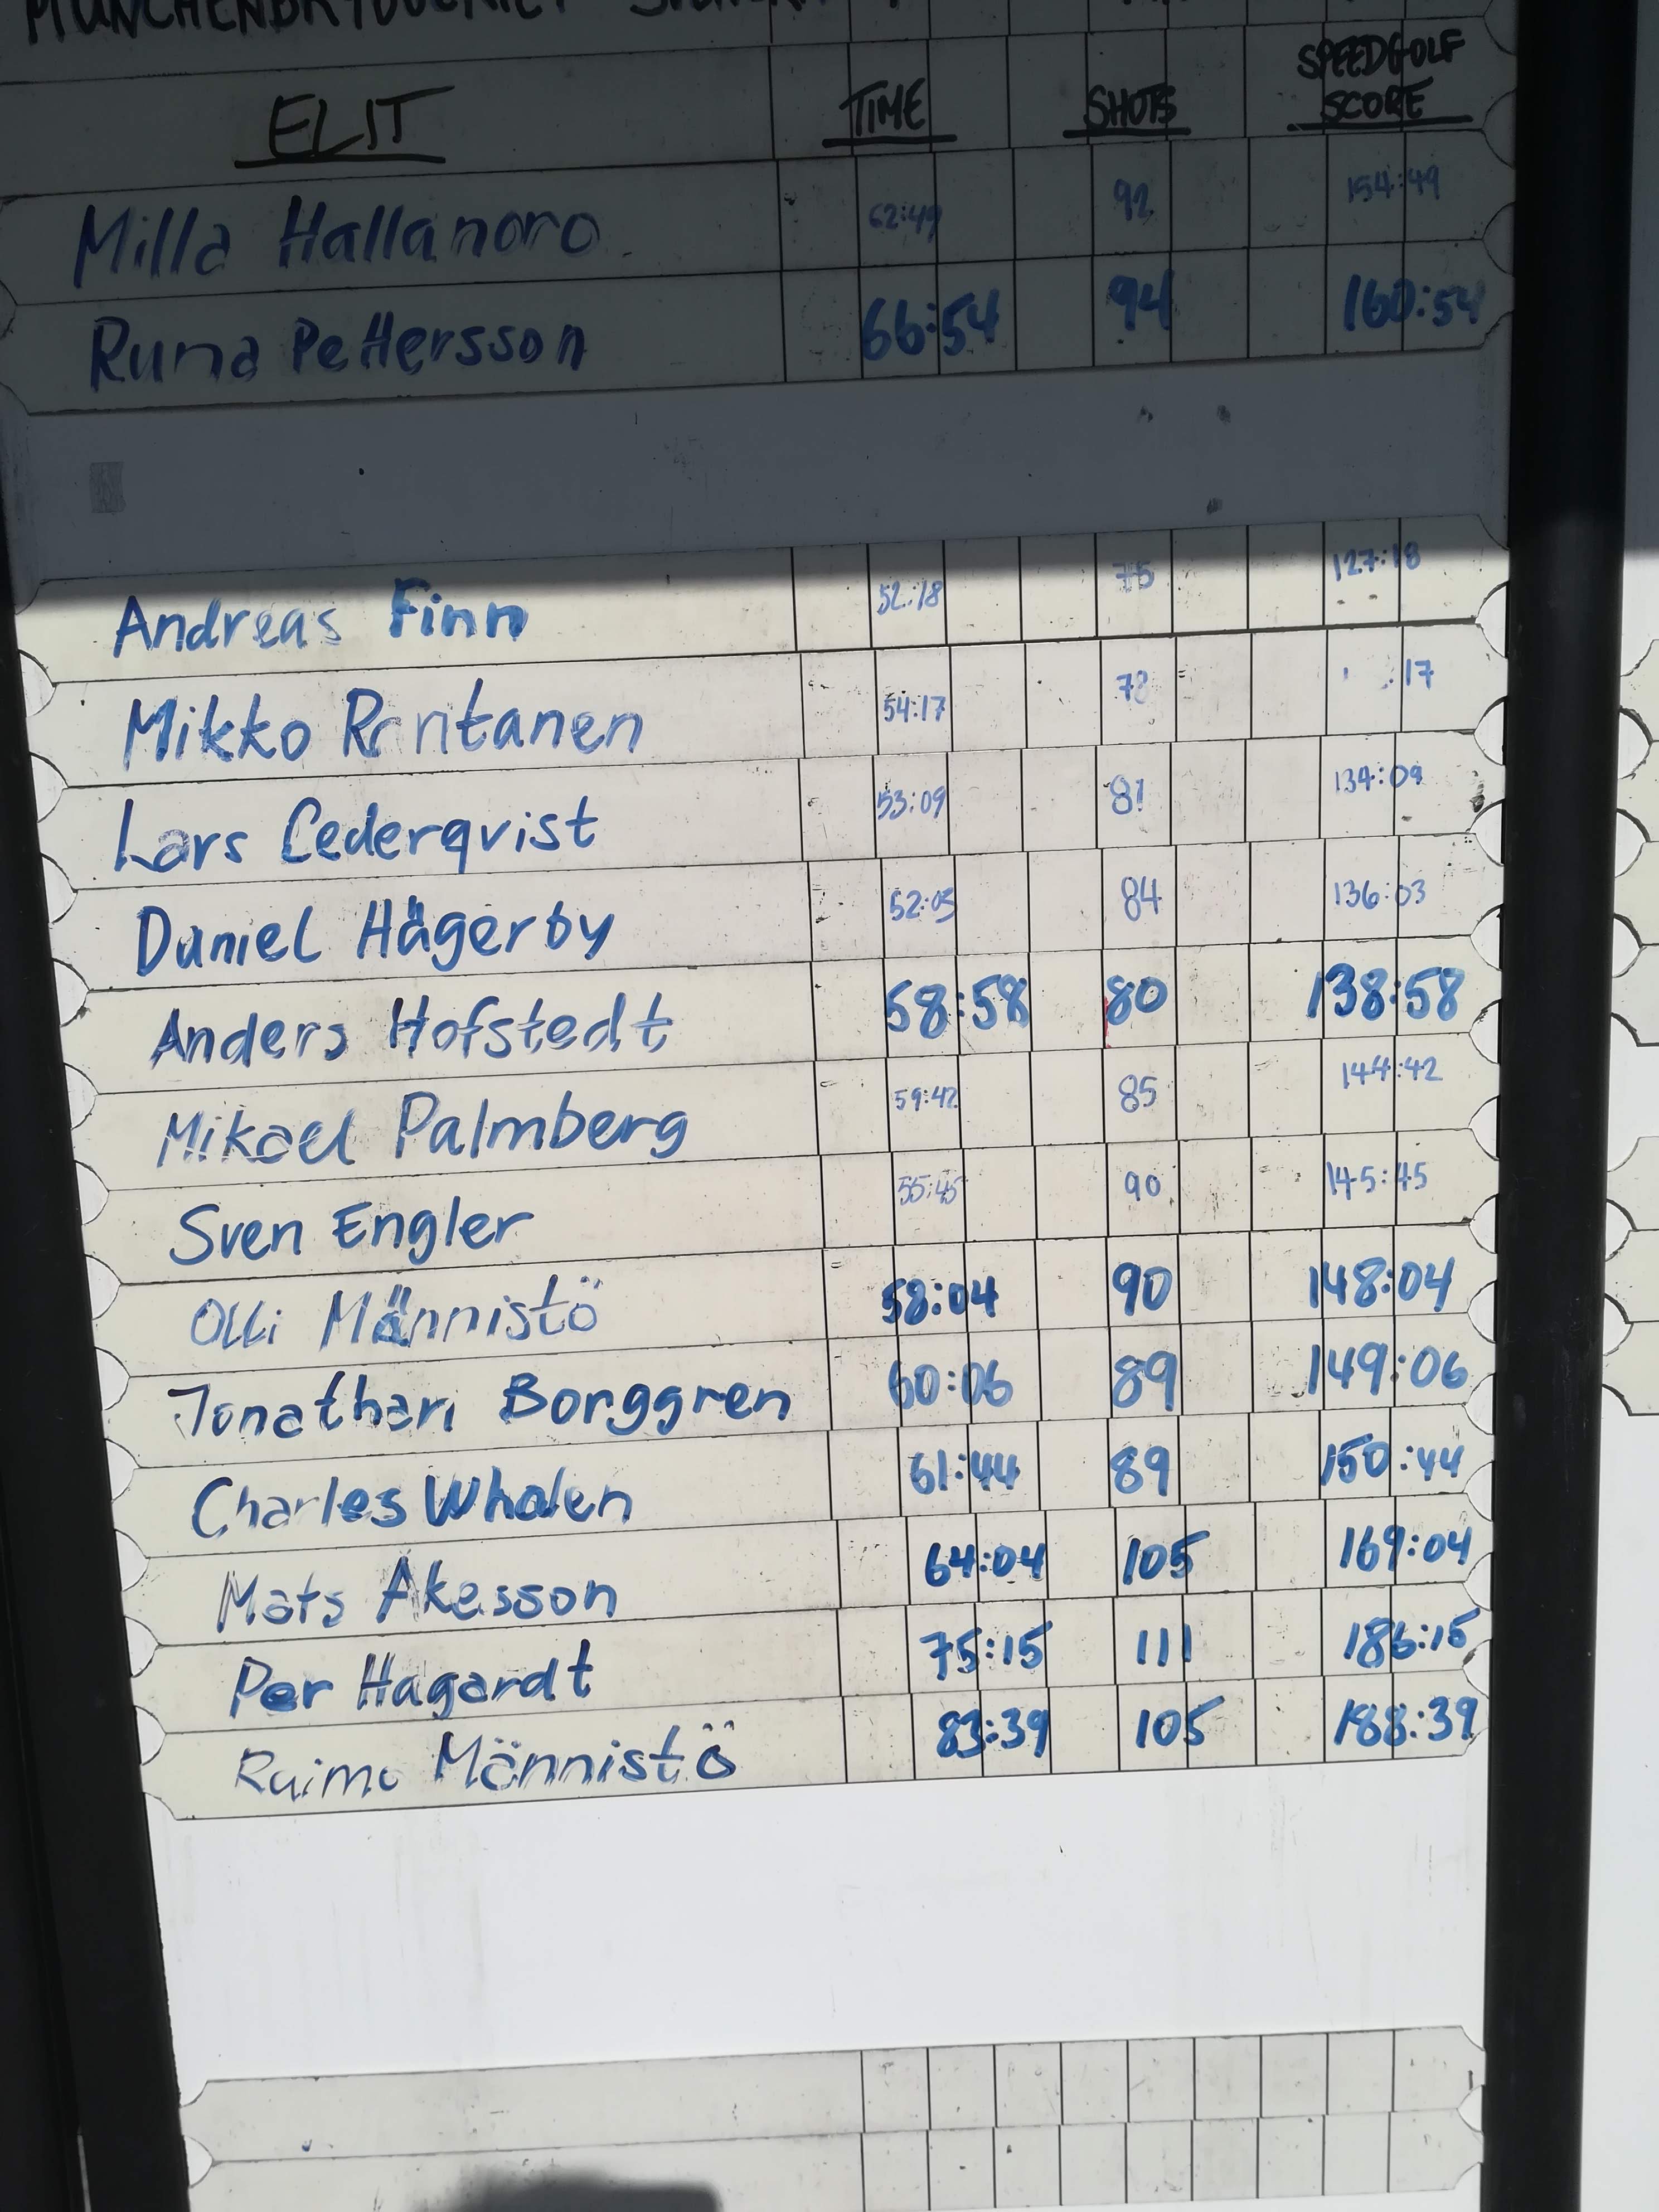 ELIT TIME SHOTS SPEEDGOLF SCORE
Milla Hallanoro 62:49 92 154:49
Runa Pettersson 66:54 94 160:54
Andreas Finn 52:18 75 127:18
Mikko Rantanen 54:17 78 17
Lars Cederqvist 53:09 81 134:09
Daniel Hägerby 52:03 84 136:03
Anders Hofstedt 58:58 80 138:58
Mikael Palmberg 59:42 85 144:42
Sven Engler 55:45 90 145:45
Olli Männistö 58:04 90 148:04
Jonathan Borggren 60:06 89 149:06
Charles Whalen 61:44 89 150:44
Mats Åkesson 64:04 105 169:04
Per Hagardt 75:15 111 186:15
Raimo Männistö 83:39 105 188:39